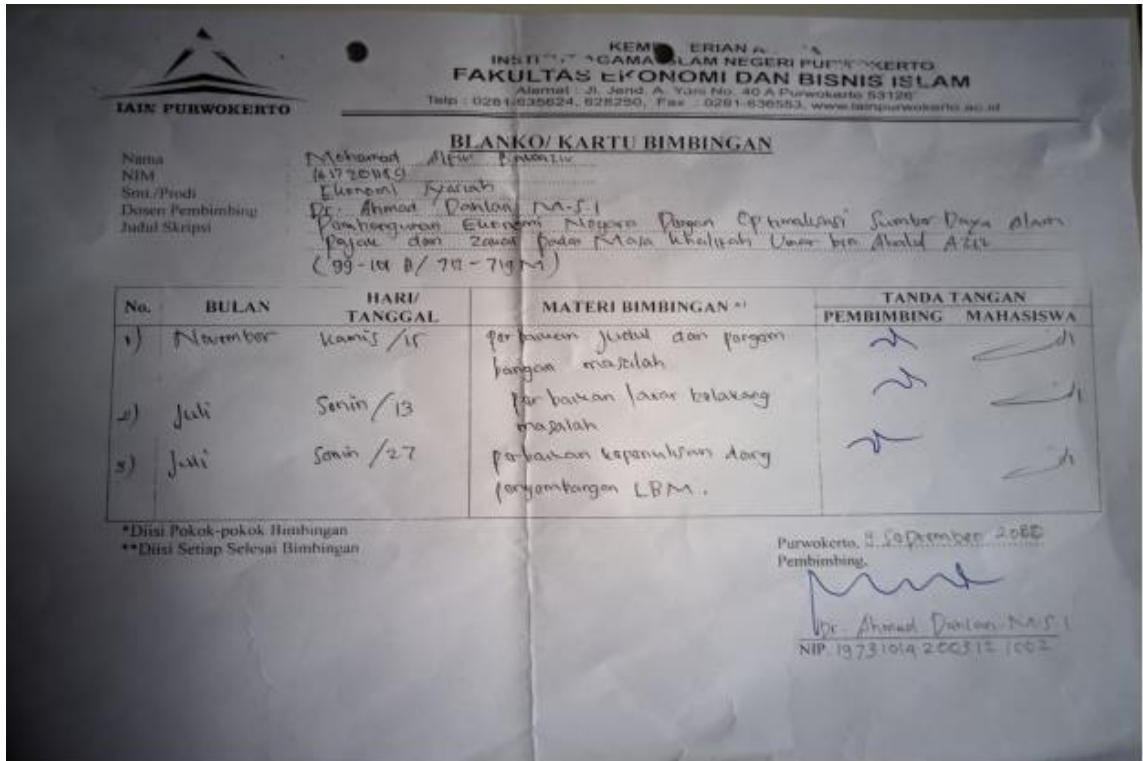 IAIN PURWOKERTO
INSTITUT AGAMA ISLAM NEGERI PURWOKERTO
FAKULTAS EKONOMI DAN BISNIS ISLAM
Alamat : Jl. Jend. A. Yani No. 40 A Purwokerto 53126
Telp : 0281-635624, 628250, Fax : 0281-636553, www.iainpurwokerto.ac.id
BLANKO/ KARTU BIMBINGAN
Nama Mohamad
NIM
Smt./Prodi Ekonomi Syariah
Dosen Pembimbing Dr. Ahmad Dahlan M.S.I
Judul Skripsi Pembangunan Ekonomi Negara Dengan Optimalisasi Sumber Daya Alam
Pajak dan Zakat pada Masa Khalifah Umar bin Abdul Aziz
(99-101 H/ 717-719 M)
No. BULAN HARI/ TANGGAL MATERI BIMBINGAN *) TANDA TANGAN
PEMBIMBING MAHASISWA
1) November Kamis /15 perbaikan judul dan pengem
bangan masalah
2) Juli Senin /13 perbaikan latar belakang
masalah
3) Juli Senin /27 perbaikan kepenulisan
pengembangan LBM.
*Diisi Pokok-pokok Bimbingan
**Diisi Setiap Selesai Bimbingan
Purwokerto, 9 September
Pembimbing,
Dr. Ahmad Dahlan M.S.I
NIP. 19731014 200312 1002